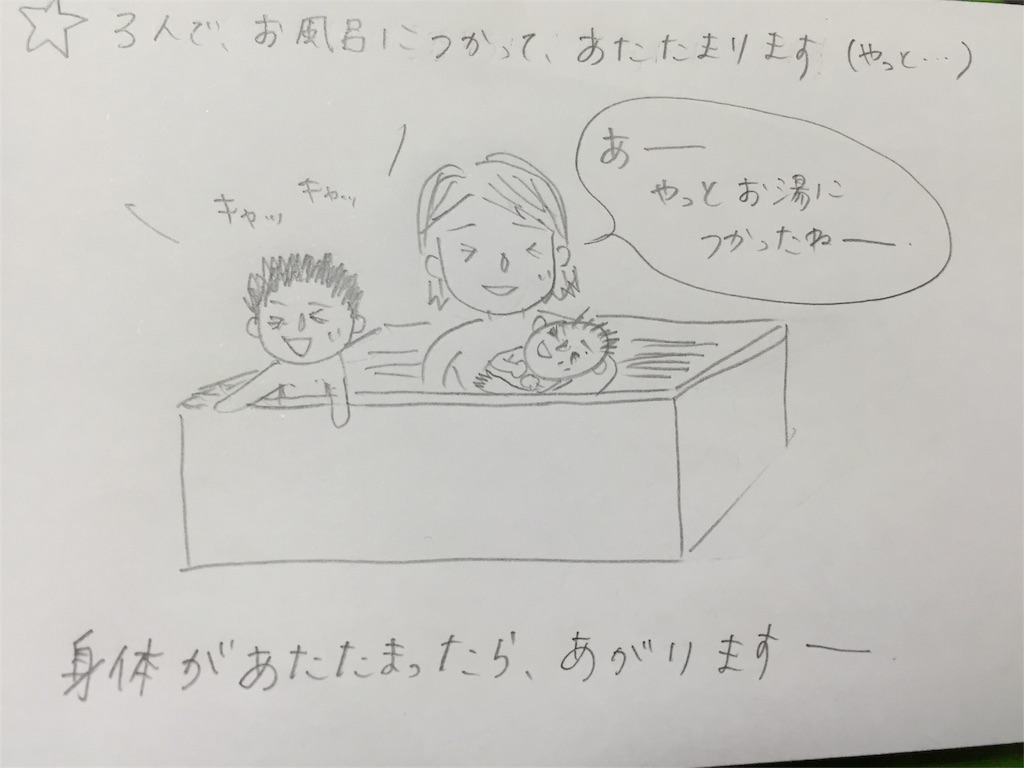 ☆ 3人で、お風呂につかって、あたたまります (やっと…)
キャッ キャッ
あー
やっとお湯に
つかったねー
身体があたたまったら、あがりますー